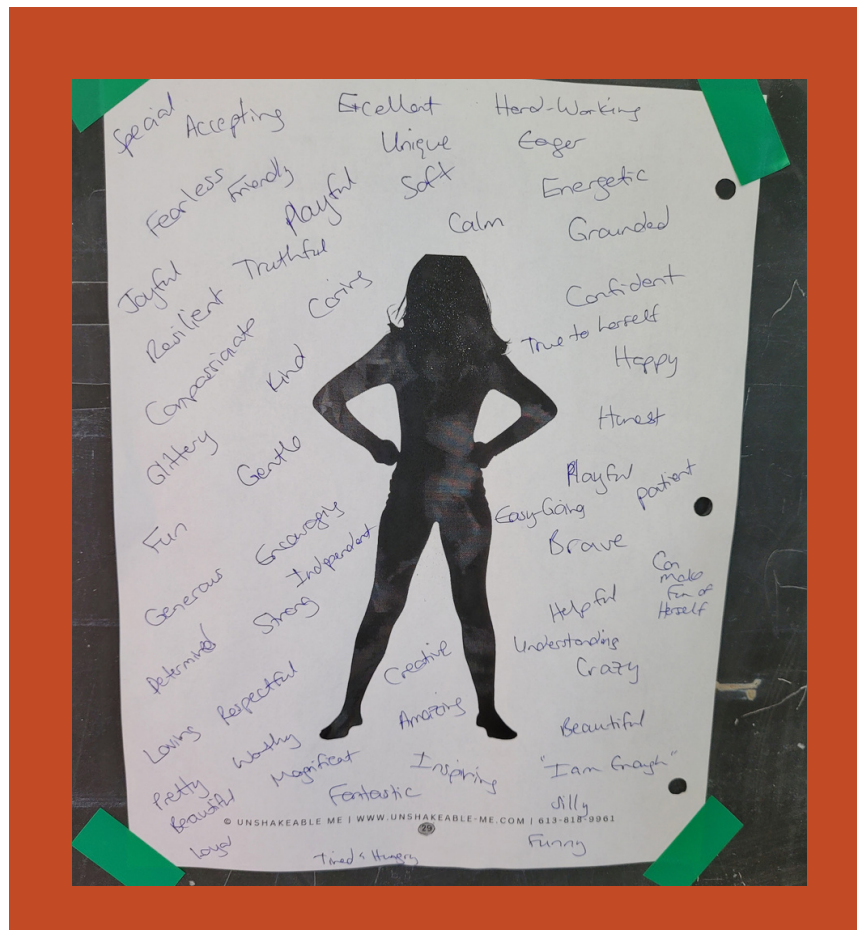 Special
Accepting
Excellent
Hard-Working
Unique
Eager
Fearless
Friendly
Playful
Soft
Energetic
Calm
Grounded
Joyful
Truthful
Resilient
Caring
Confident
True to herself
Compassionate
Kind
Happy
Glittery
Gentle
Honest
Playful
patient
Fun
Encouraging
Easy-Going
Independent
Brave
Generous
Strong
Can
make
Fun of
Herself
Helpful
Determined
Understanding
Creative
Crazy
Loving
Respectful
Amazing
Beautiful
Worthy
Magnificent
Inspiring
"I am Enough"
Pretty
Beautiful
Fantastic
Silly
© UNSHAKEABLE ME | WWW.UNSHAKEABLE-ME.COM | 613-818-9961
29
Loyal
Tired & Hungry
Funny